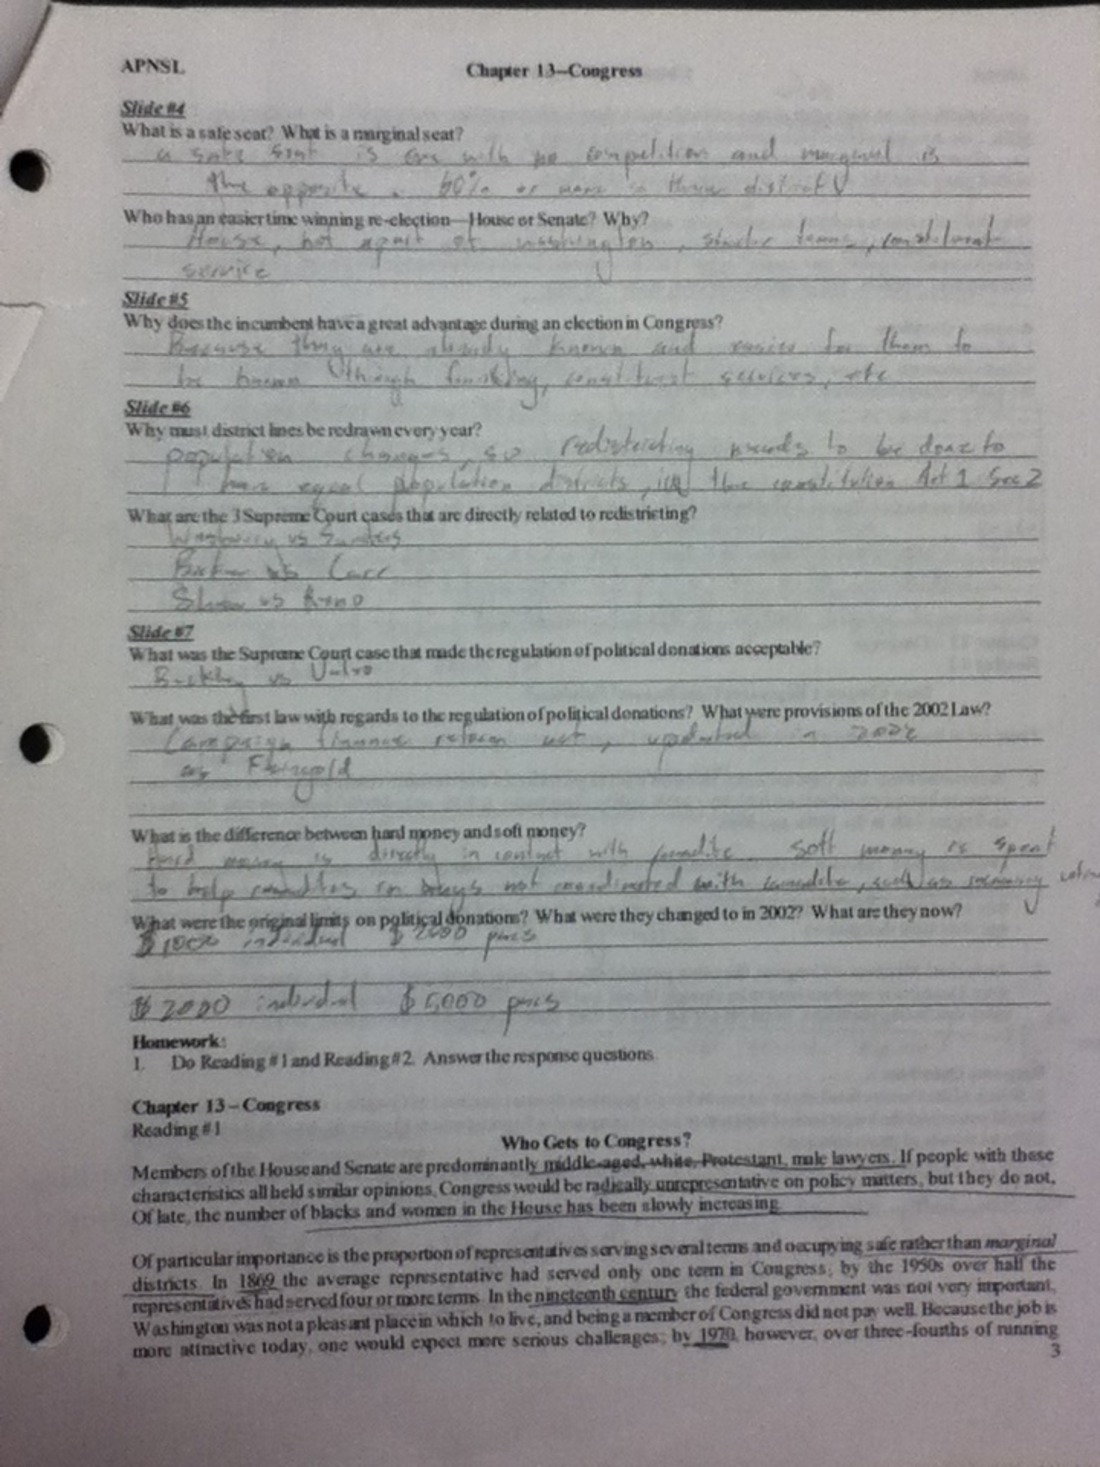 APNSL
Chapter 13–Congress
Slide #4
What is a safe seat? What is a marginal seat?
a safe seat is one with no competition and marginal is
the opposite. 60% or more in district
Who has an easier time winning re-election—House or Senate? Why?
House, not apart of washington, terms, constituent
service
Slide #5
Why does the incumbent have a great advantage during an election in Congress?
Because they are already known and easier for them to
be known though constituent services, etc
Slide #6
Why must district lines be redrawn every year?
population changes, so needs to be done to
have equal population districts, the constitution Art 1 Sec 2
What are the 3 Supreme Court cases that are directly related to redistricting?
vs
vs Carr
Shaw vs Reno
Slide #7
What was the Supreme Court case that made the regulation of political donations acceptable?
Buckley vs
What was the first law with regards to the regulation of political donations? What were provisions of the 2002 Law?
Campaign finance reform act, updated in 2002
as Feingold
What is the difference between hard money and soft money?
Hard money is directly in contact with Soft money is spent
to help in ways not coordinated with such as
What were the original limits on political donations? What were they changed to in 2002? What are they now?
$1000 individual $2000 pacs
$2000 individual $5,000 pacs
Homework:
1. Do Reading #1 and Reading #2. Answer the response questions.
Chapter 13 – Congress
Reading #1
Who Gets to Congress?
Members of the House and Senate are predominantly middle-aged, white, Protestant, male lawyers. If people with these
characteristics all held similar opinions, Congress would be radically unrepresentative on policy matters, but they do not.
Of late, the number of blacks and women in the House has been slowly increasing.
Of particular importance is the proportion of representatives serving several terms and occupying safe rather than marginal
districts. In 1869 the average representative had served only one term in Congress; by the 1950s over half the
representatives had served four or more terms. In the nineteenth century the federal government was not very important,
Washington was not a pleasant place in which to live, and being a member of Congress did not pay well. Because the job is
more attractive today, one would expect more serious challenges; by 1970, however, over three-fourths of running
3